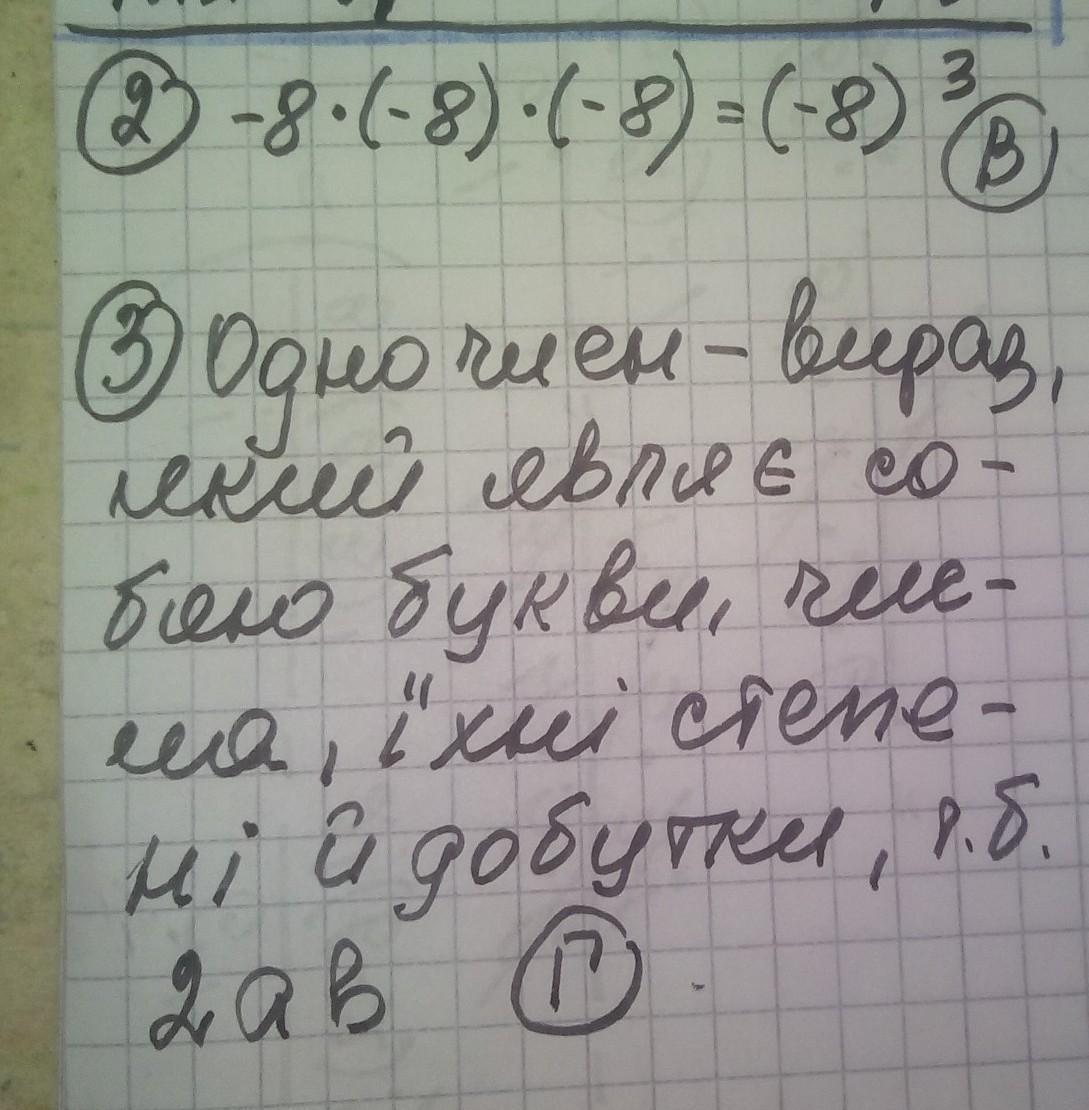 ② -8·(-8)·(-8)=(-8)³ Ⓑ
③ Одночлен - вираз,
який являє со-
бою букви, чис-
ла, їхні степе-
ні й добутки, т.б.
2ав Ⓖ